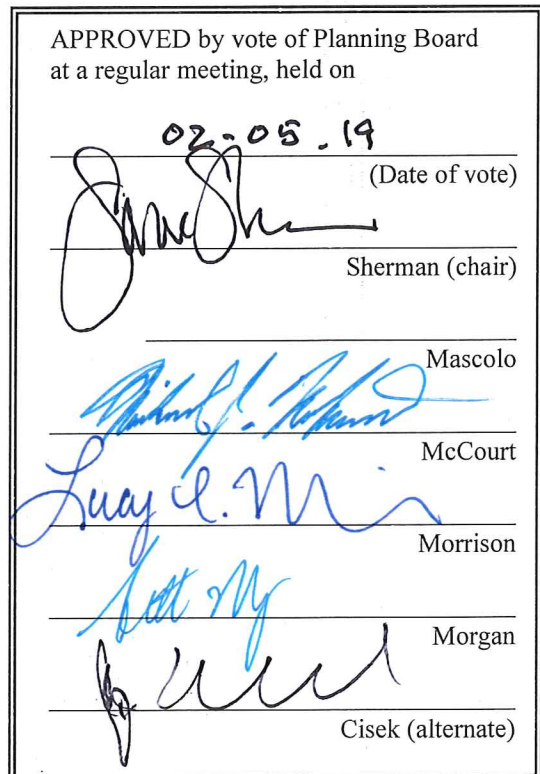 APPROVED by vote of Planning Board
at a regular meeting, held on
02-05.19
(Date of vote)
Sherman (chair)
Mascolo
McCourt
Lucy
Morrison
Scott
Morgan
Cisek (alternate)